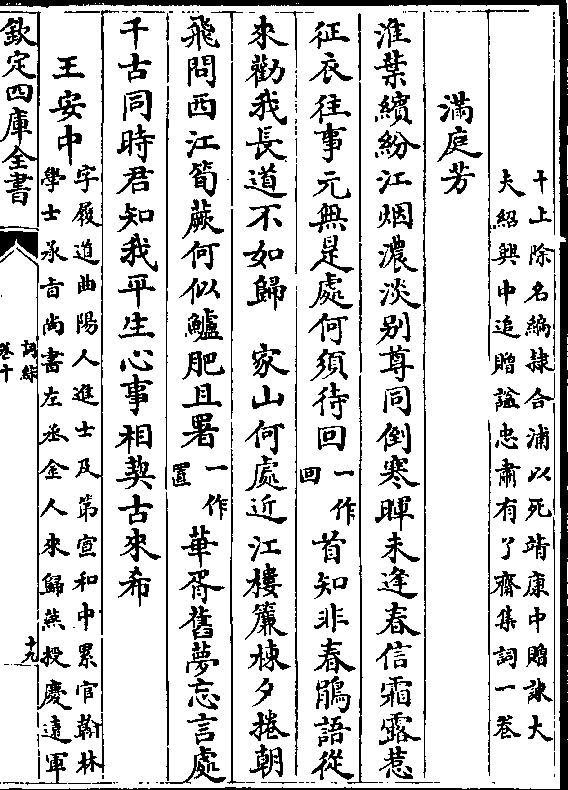 十上除名編隷合浦以死靖康中贈諫大
夫紹興中追贈諡忠肅有了齋集詞一卷
滿庭芳
淮葉繽紛江烟濃淡别尊同倒寒暉未逢春信霜露惹
征衣往事元無是處何須待回一作囘首知非春鵑語從
來勸我長道不如歸　家山何處近江樓簾棟夕捲朝
飛問西江筍蕨何似鱸肥且署一作置華胥舊夢忘言處
千古同時君知我平生心事相契古來希
王安中字履道曲陽人進士及第宣和中累官翰林
學士承旨尚書左丞金人來歸燕授慶遠軍
欽定四庫全書
詞綜
卷十
十九